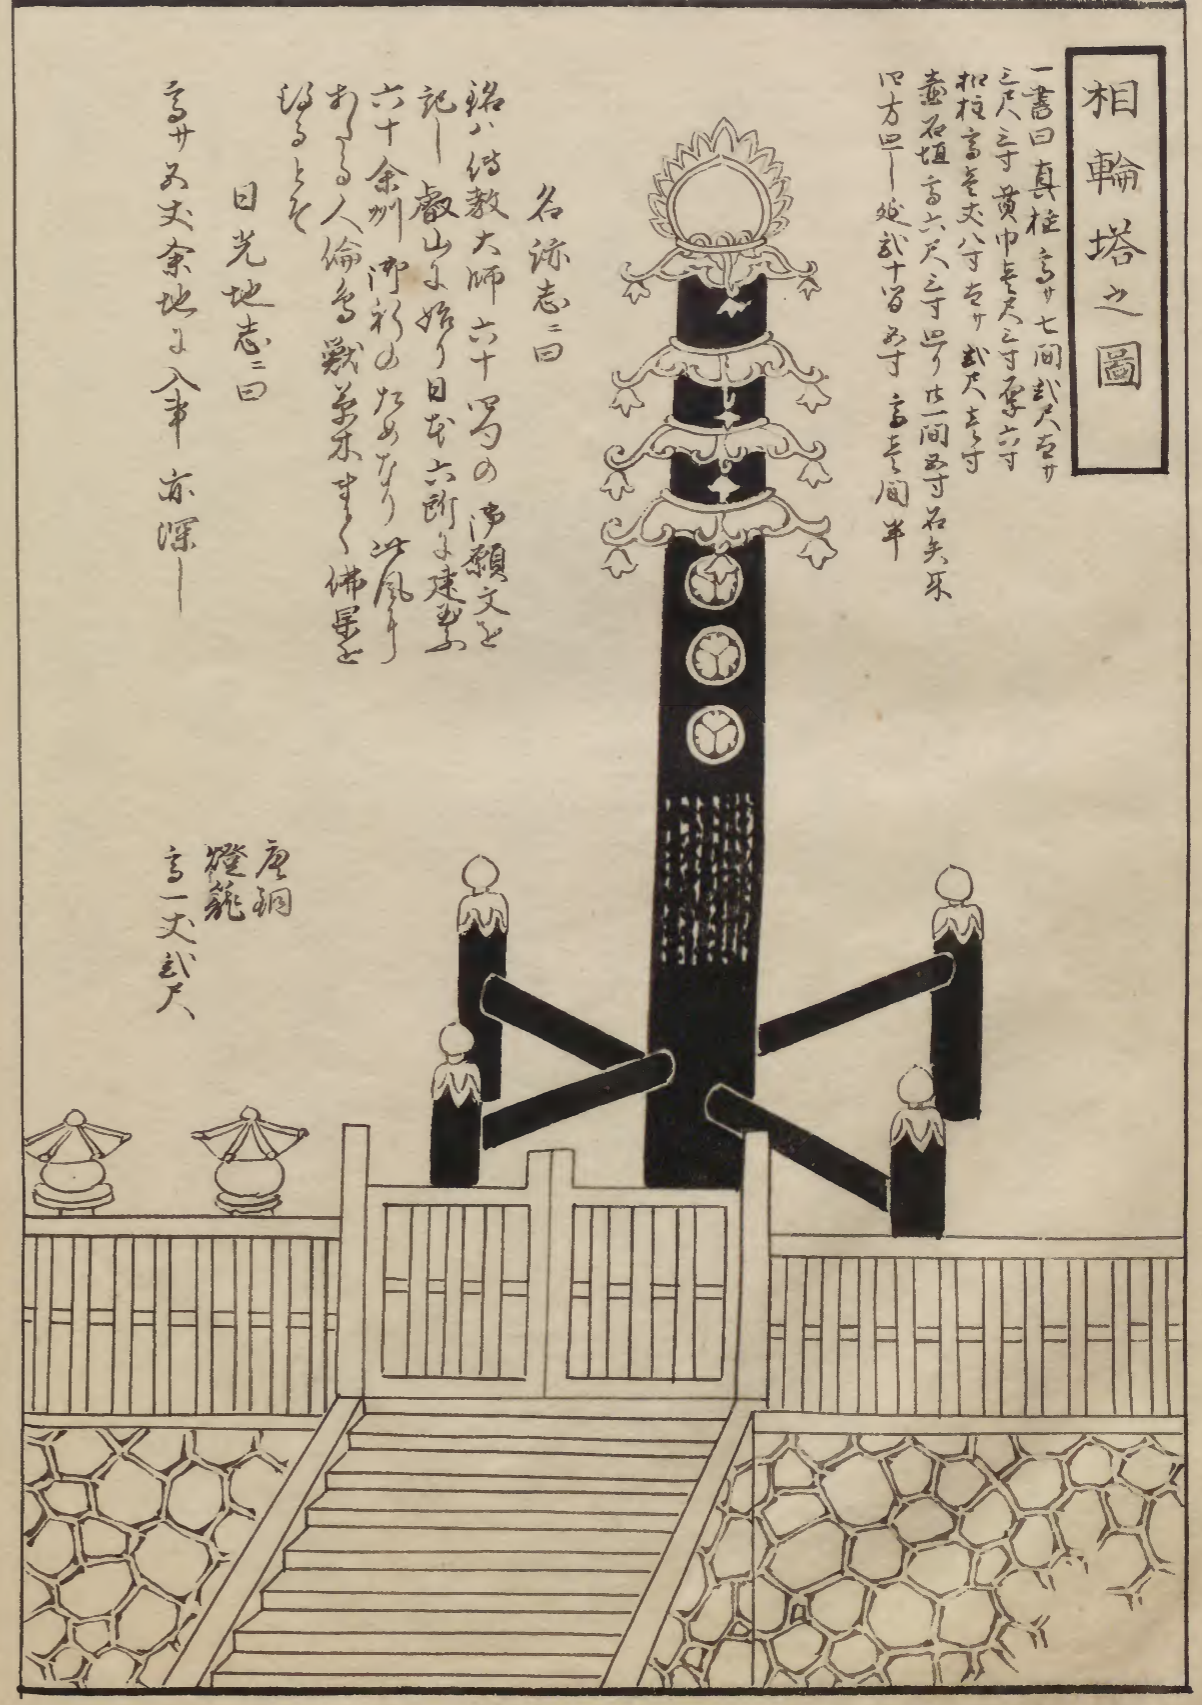 相輪塔之圖
一書曰真柱高サ七間貳尺太サ
三尺三寸貫巾壱尺三寸厚六寸
扣柱高壱丈八寸太サ貳尺壱寸
臺石垣高六尺三寸四リ廿一間五寸石矢来
四方四〆延貳十間五寸高壱間半
名跡志ニ曰
銘ハ傳教大師六十四句の御願文を
記し叡山より始り日本六所に建玉ふ
六十余州御祈のためなり此風に
あたる人倫鳥獣草木まて佛果を
得るとそ
日光地志ニ曰
高サ五丈余地に入事亦深し
唐銅
燈籠
高一丈貳尺